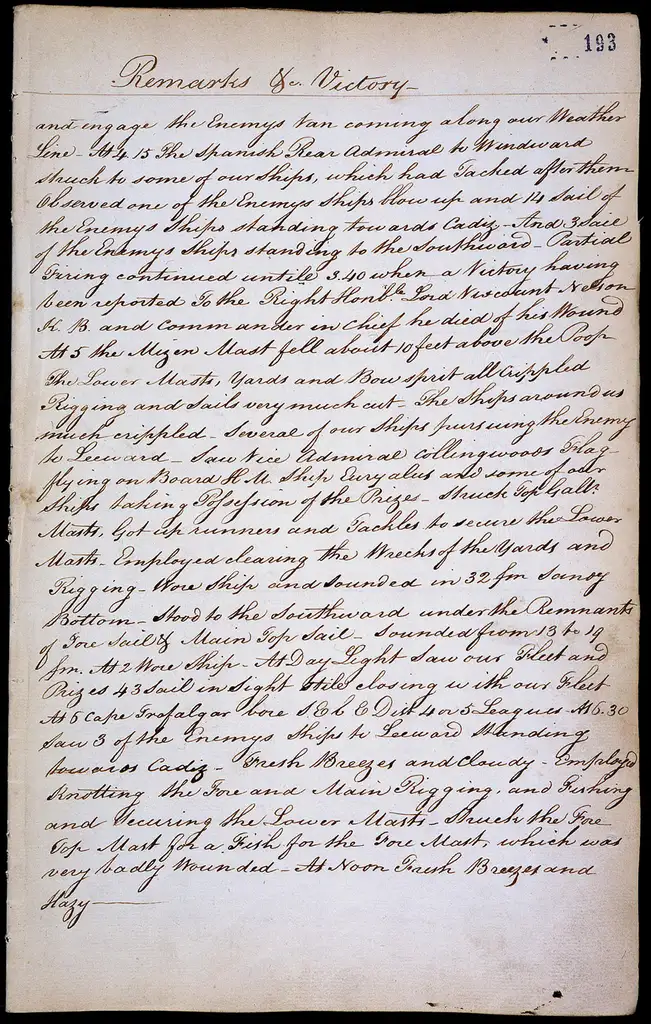 193
Remarks &c. Victory
and engage the Enemys Van coming along our Weather
Line - At 4.15 The Spanish Rear Admiral to Windward
struck to some of our Ships, which had Tacked after them
Observed one of the Enemys Ships blow up and 14 Sail of
the Enemys Ships standing towards Cadiz - And 3 Sail
of the Enemys Ships standing to the Southward - Partial
Firing continued untile 3.40 when a Victory having
been reported To the Right Honble. Lord Viscount Nelson
K.B. and Commander in Chief he died of his Wound
At 5 the Mizen Mast fell about 10 feet above the Poop
The Lower Masts, Yards and Bowsprit all Crippled
Rigging and Sails very much cut - The Ships around us
much crippled - Several of our Ships pursuing the Enemy
to Leeward - Saw Vice Admiral Collingwoods Flag
flying on Board H.M. Ship Euryalus and some of our
Ships taking Possession of the Prizes - Struck Top Gallt.
Masts, Got up runners and Tackles to secure the Lower
Masts - Employed clearing the Wrecks of the Yards and
Rigging - Wore Ship and Sounded in 32 fm Sandy
Bottom - Stood to the Southward under the Remnants
of Fore Sail & Main Top Sail - Sounded from 13 to 19
fm. At 2 Wore Ship - At Day Light Saw our Fleet and
Prizes 43 Sail in Sight Still closing with our Fleet
At 6 Cape Trafalgar bore S.E b E Dist 4 or 5 Leagues - At 6.30
Saw 3 of the Enemys Ships to Leeward Standing
towards Cadiz - Fresh Breezes and Cloudy - Employed
Knotting the Fore and Main Rigging, and Fishing
and Securing the Lower Masts - Struck the Fore
Top Mast for a Fish for the Fore Mast, which was
very badly Wounded - At Noon Fresh Breezes and
Hazy